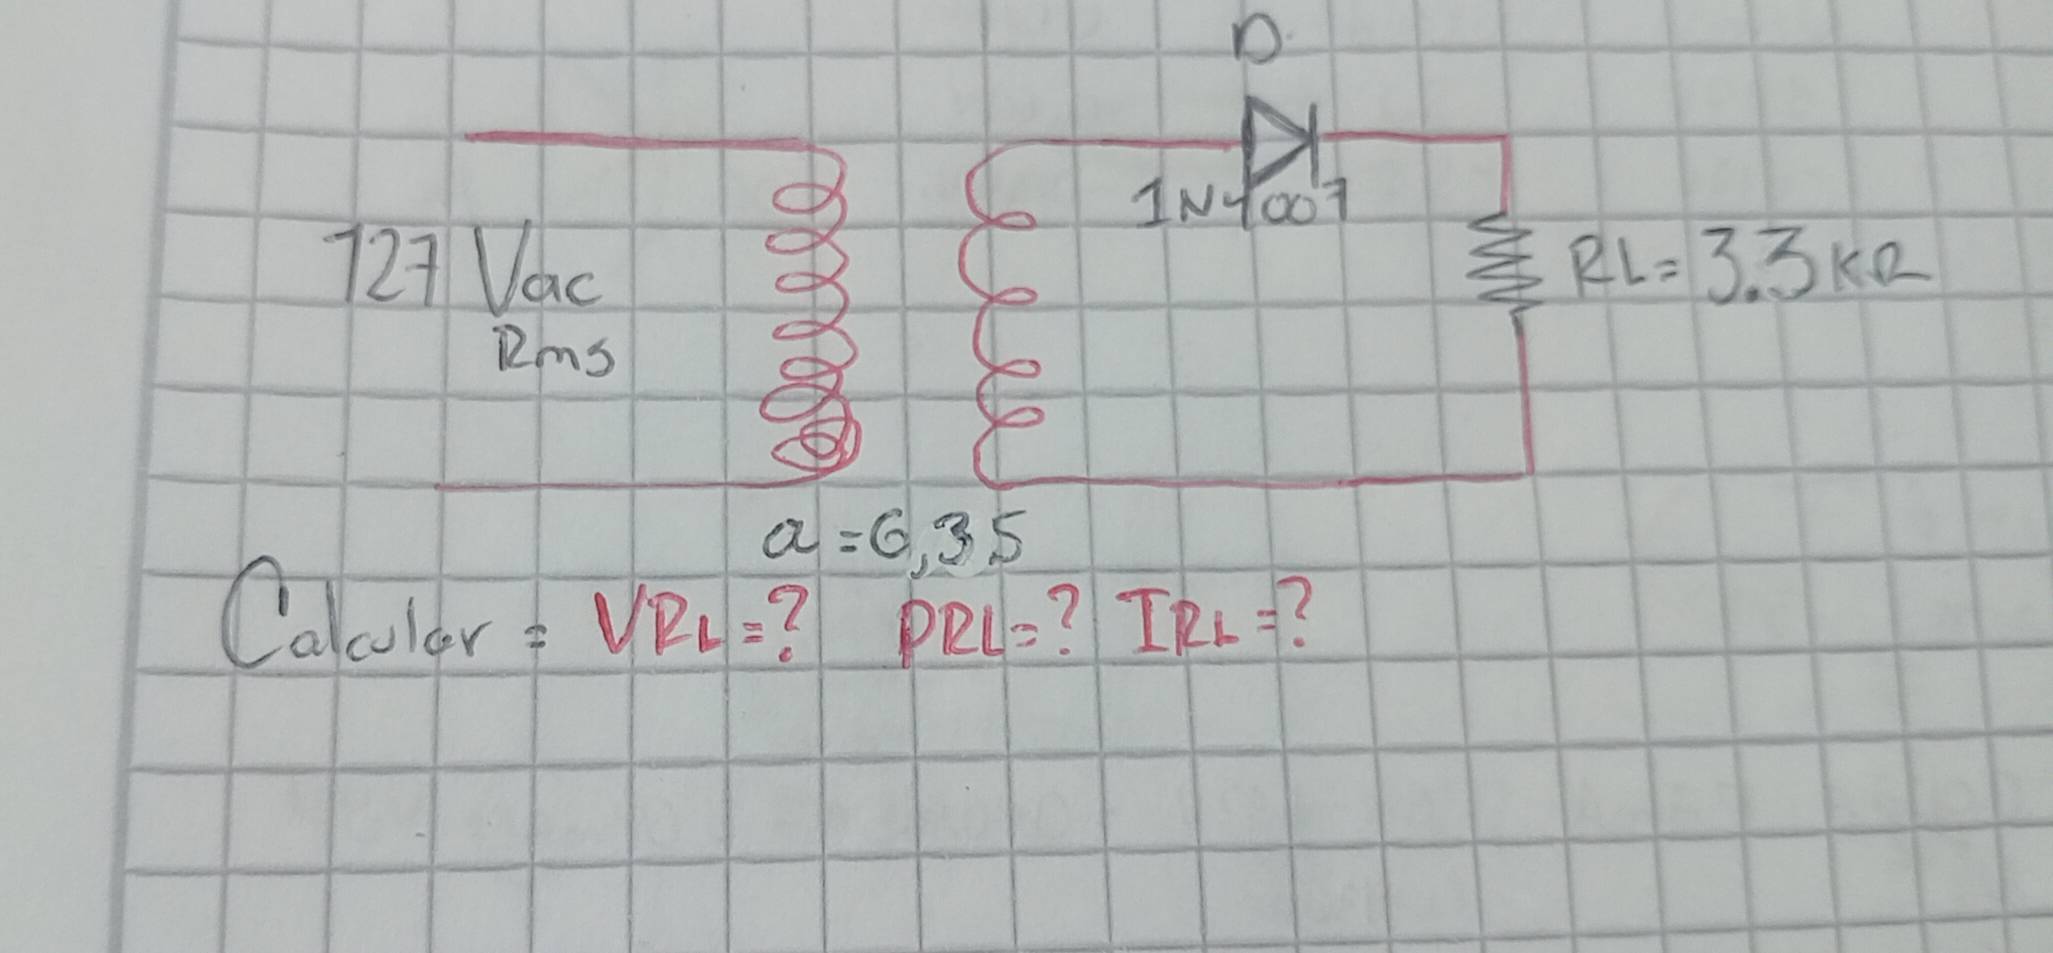 D
1N4007
127 Vac
Rms
RL = 3.3 KΩ
a = 6,35
Calcular = VRL = ? PRL = ? IRL = ?